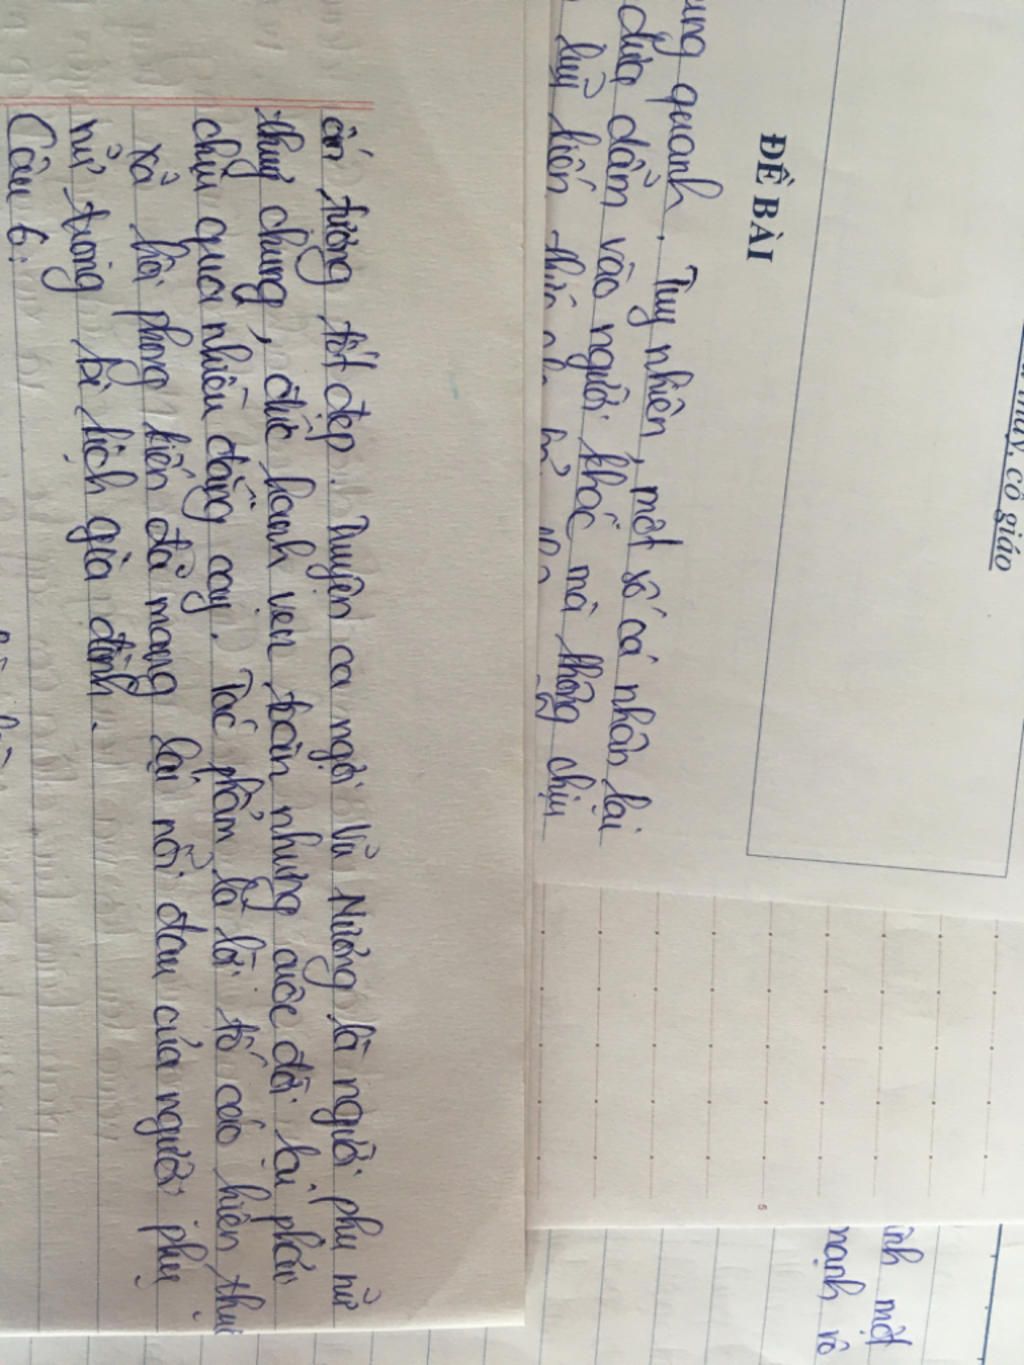 thầy, cô giáo
ĐỀ BÀI
ung quanh. Tuy nhiên, một số cá nhân lại
dựa dẫm vào người khác mà không chịu
ấn tượng tốt đẹp. Truyện ca ngợi Vũ Nương là người phụ nữ
thuỷ chung, đức hạnh vẹn toàn nhưng cuộc đời lại phải
chịu quá nhiều đắng cay. Tác phẩm là lời tố cáo hiện thực
xã hội phong kiến đã mang lại nỗi đau của người phụ
nữ trong bi kịch gia đình.
Câu 6:
5
ình một
mạnh rõ